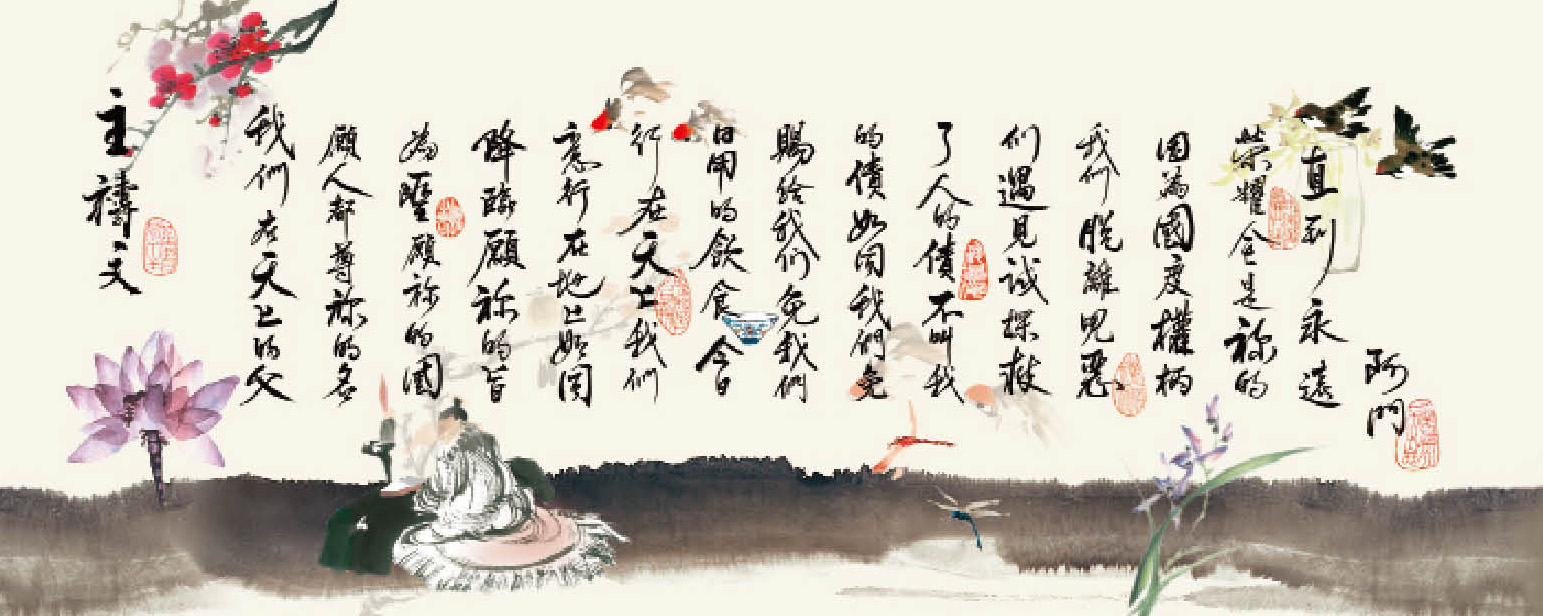 主禱文
我們在天上的父
願人都尊祢的名
為聖願祢的國
降臨願祢的旨
意行在地上如同
行在天上我们
日用的飲食今日
賜給我们免我們
的債如同我們免
了人的債不叫我
们遇見试探救
我们脱離兇惡
因為國度權柄
榮耀全是祢的
直到永遠
阿門